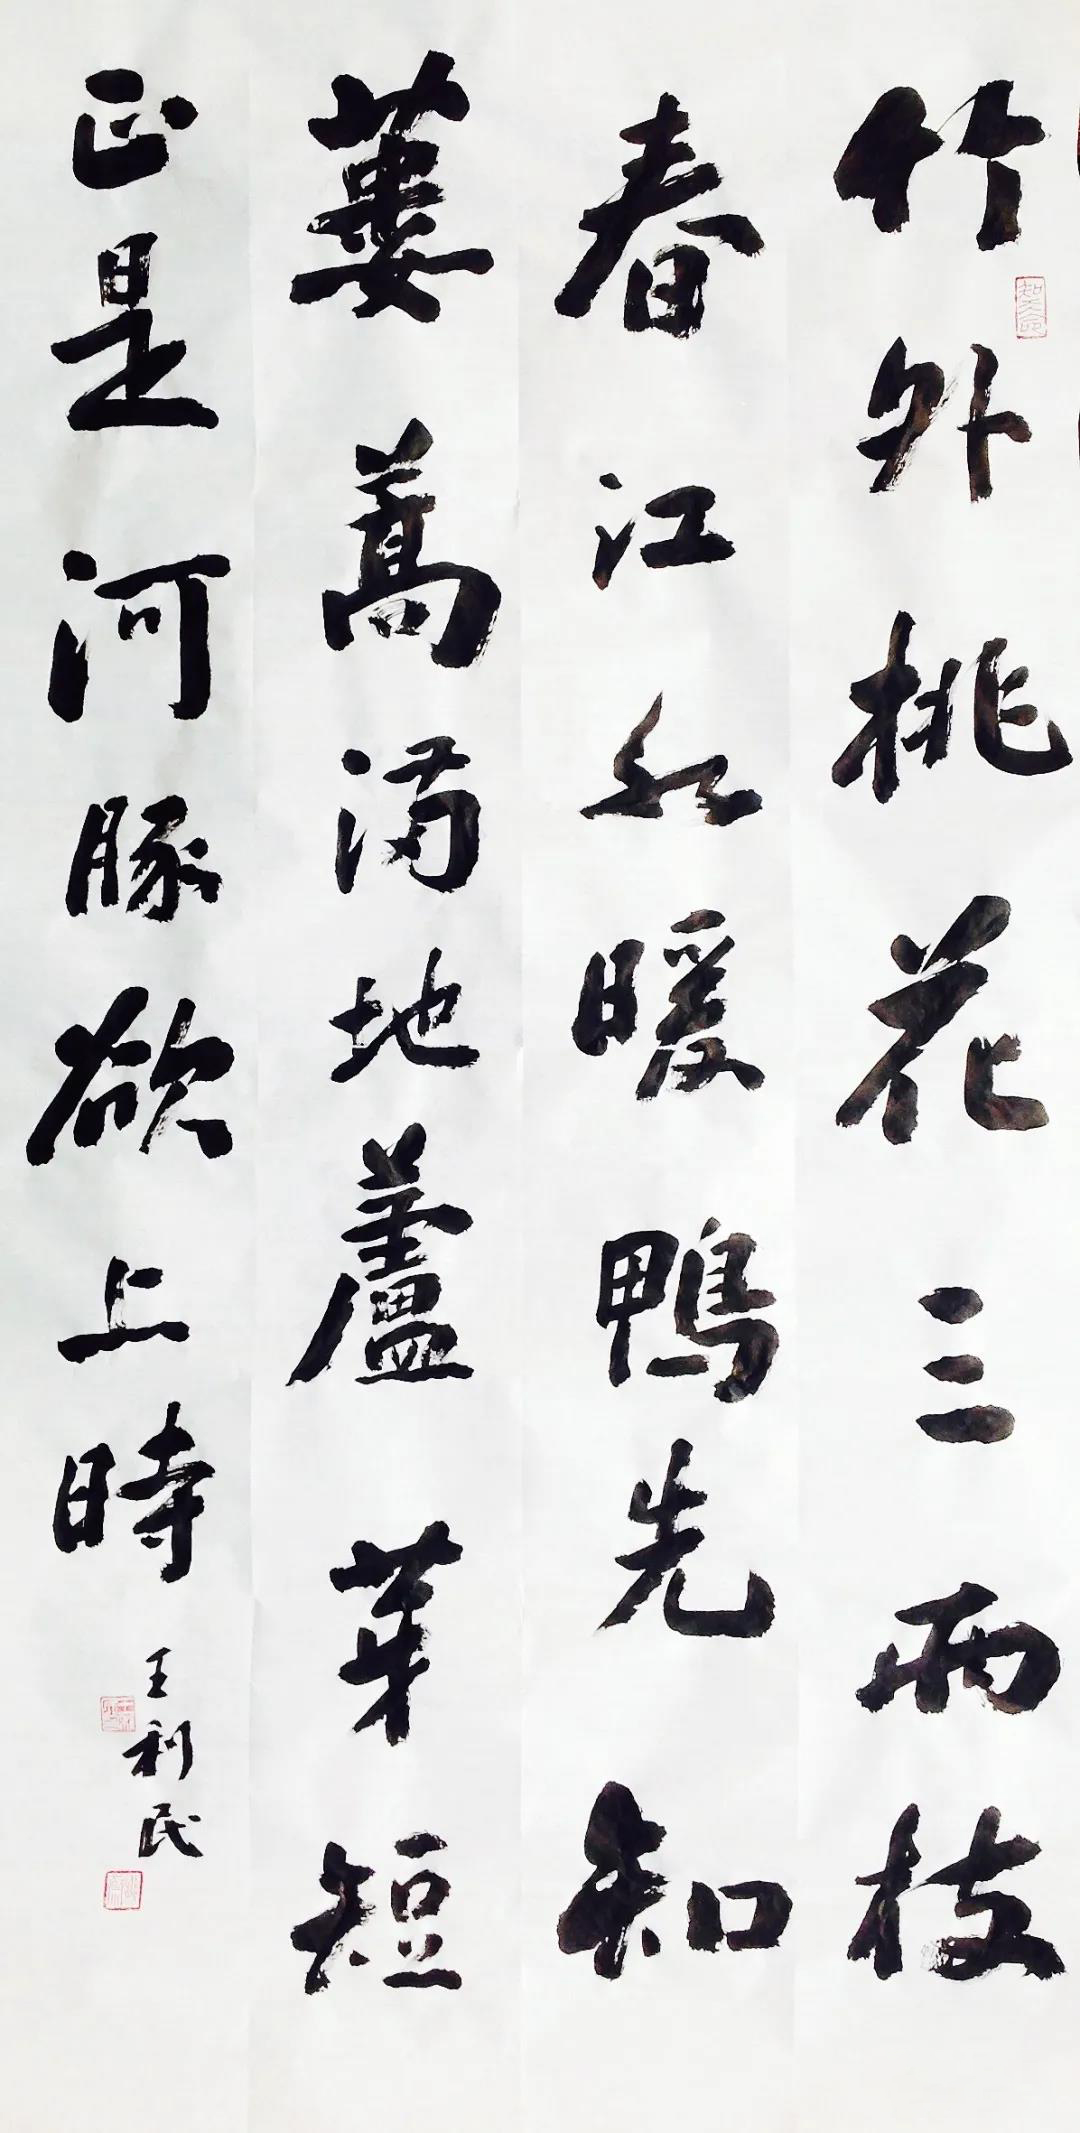 竹外挑花三兩枝
春江水暖鴨先知
蔞蒿滿地蘆芽短
正是河豚欲上時
王利民
知天命